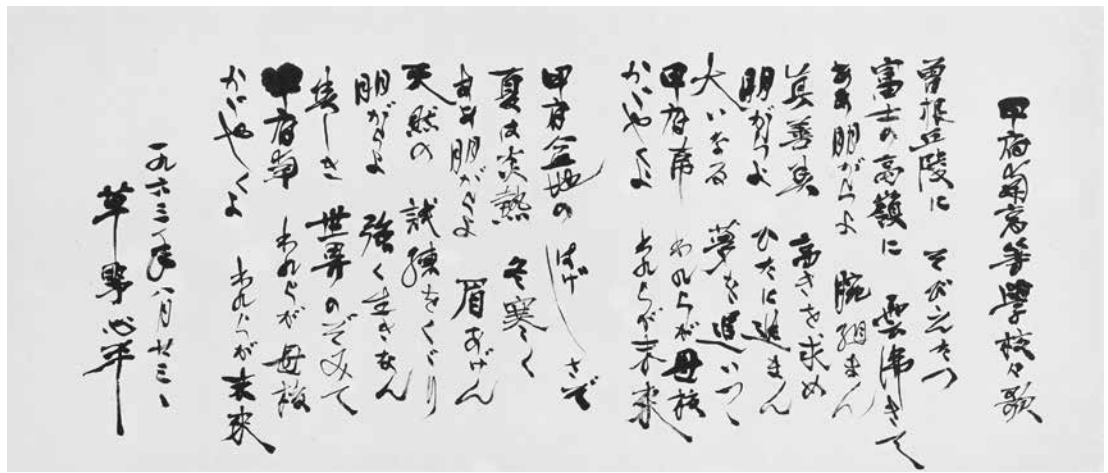 甲府南高等學校々歌
曽根丘陵に そびえたつ
富士の高嶺に 雲沸きて
ああ朋がらよ 腕組まん
真善美 高きを求め
朋がらよ ひたに進まん
大いなる 夢を追いつつ
甲府南 われらが母校
かゞやくよ われらが未来
甲府盆地の はげしさぞ
夏は炎熱 冬寒く
ああ朋がらよ 眉あげん
天然の 試練をくぐり
朋がらよ 強く生きなん
美しき 世界のぞみて
甲府南 われらが母校
かゞやくよ われらが未来
一九六三年八月廿三日
草野心平